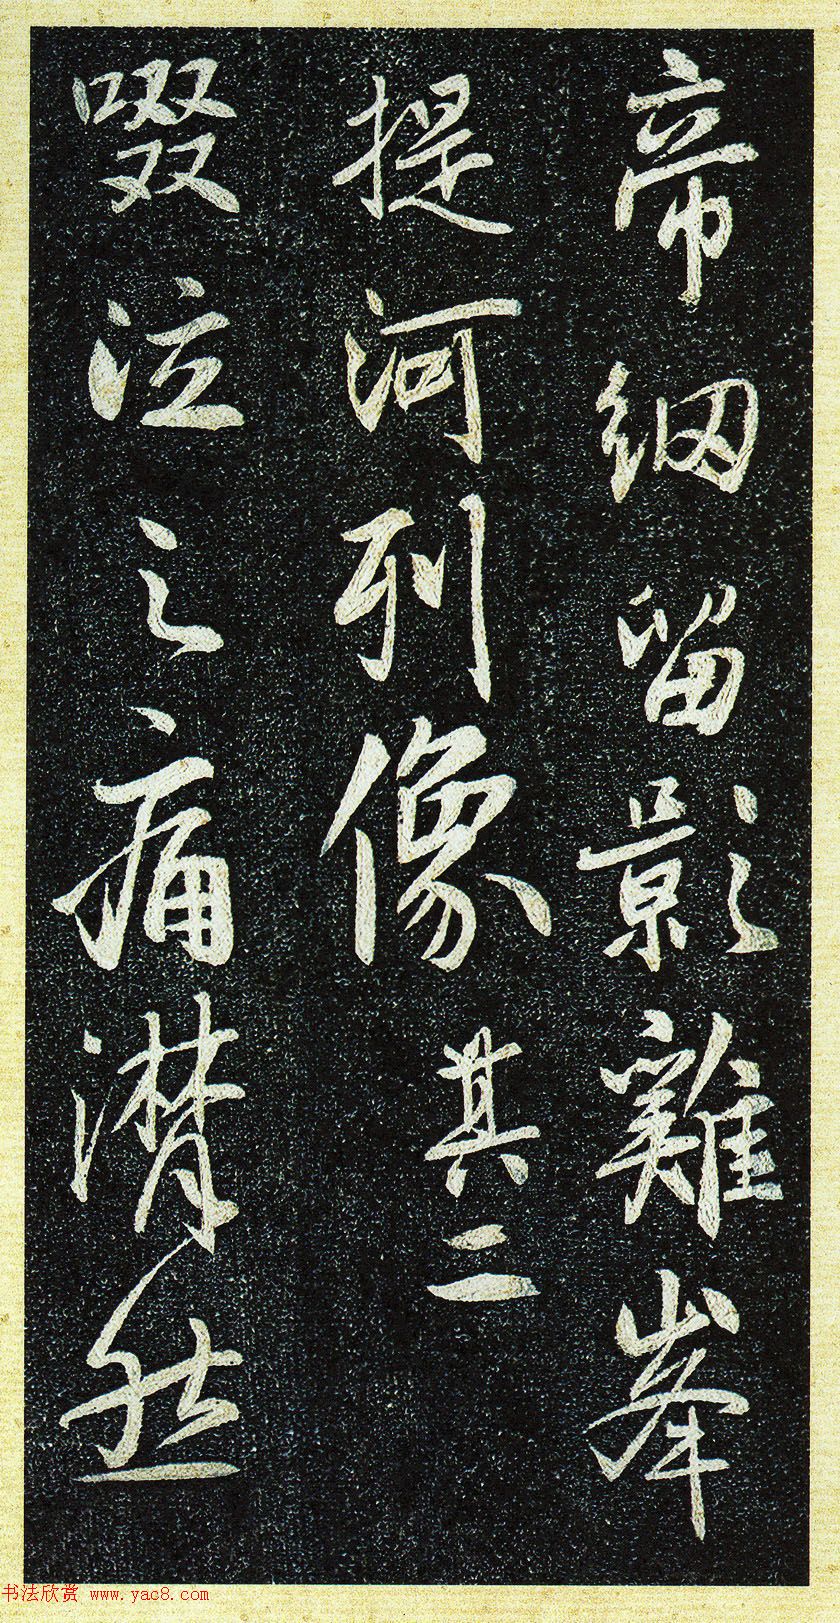 帝網留影雞峯
提河列像其二
啜泣之痛潸然
书法欣赏 www.yac8.com